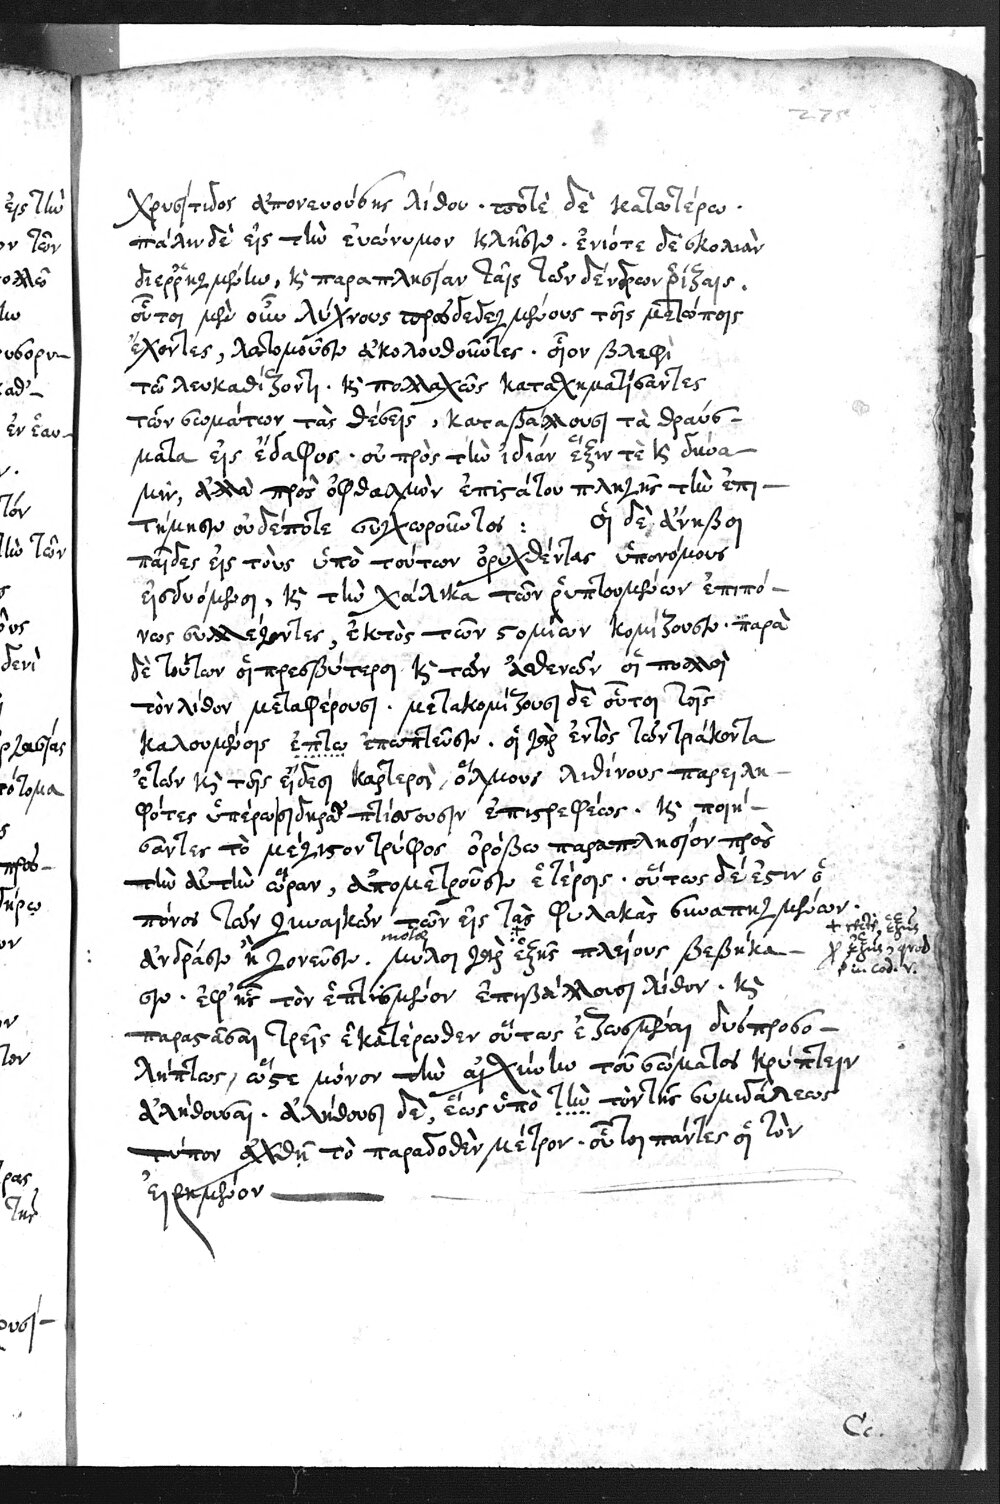 χρυσίτιδος ἀπονευούσης λίθου · ποτὲ δὲ κατωτέρω ·
πάλιν δὲ εἰς τὴν εὐώνυμον κλῆσιν · ἐνίοτε δὲ σκολιὰν
διερρηγμένην, ϗ παραπλησίαν ταῖς τῶν δένδρων ῥίζαις .
οὗτοι μὲν οὖν λύχνους προσδεδεγμένους τοῖς μετώποις
ἔχοντες, λατομοῦσιν ἀκολουθοῦντες · οἷον βλεφὶ
τῷ λευκαθίζοντι · ϗ πολλαχῶς καταχηματίσαντες
τῶν σωμάτων τὰς θέσεις, καταβάλλουσι τὰ θραύσ-
ματα εἰς ἔδαφος · οὐ πρὸς τὴν ἰδίαν ἕξιν τὲ ϗ δύνα-
μιν, ἀλλὰ πρὸς ὀφθαλμὸν ἐπιστάτου πληγῆς τὴν ἐπι-
τίμησιν οὐδέποτε συγχωροῦντος : οἱ δὲ ἄνηβοι
παῖδες εἰς τοὺς ὑπὸ τούτων ὀρυχθέντας ὑπονόμους
εἰσδυόμενοι, ϗ τὴν χάλικα τῶν ῥιπτουμένων ἐπιπό-
νως συλλέγοντες, ἐκτὸς τῶν στομίων κομίζουσιν · παρὰ
δὲ τούτων οἱ πρεσβύτεροι ϗ τῶν ἀσθενῶν οἱ πολλοὶ
τὸν λίθον μεταφέρουσι · μετακομίζουσι δὲ οὗτοι τοῖς
καλουμένοις ἐπτω ἐπωπτεῦσιν . οἱ γὰρ ἐντὸς τῶν τριάκοντα
ἐτῶν ϗ τοῖς εἴδεσι καρτεροὶ, ὅλμους λιθίνους παρειλη-
φότες ὑπέρῳ σιδηρῷ πτίσσουσιν ἐπιστρεφέως · ϗ ποιή-
σαντες τὸ μέγιστον τρύφος ὀρόβῳ παραπλήσιον πρὸς
τὴν αὐτὴν ὥραν, ἀπομετροῦσιν ἑτέροις · οὕτως δέ ἐστιν ὁ
πόνος τῶν γυναικῶν τῶν εἰς τὰς φυλακὰς συναπηγμένων ·
ἀνδράσιν ἢ γονεῦσιν . μύλοι γὰρ ἑξῆς πλείους βεβήκα-
σιν · ἐφ' ἧς τὸν ἐπτισμένον ἐπιβάλλουσι λίθον · ϗ
παραστᾶσαι τρεῖς ἑκατέρωθεν οὕτως ἐζωσμέναι δυσπροσο-
λήπτως, ὥστε μόνον τὴν αἰσχύνην τοῦ σώματος κρύπτειν
ἀλήθουσαι · ἀλήθουσι δὲ, ἕως ὑπὸ τὴν τὸν τῆς σεμιδάλεως
τύπον ἀχθῇ τὸ παραδοθὲν μέτρον · οὗτοι πάντες οἱ τὸν
εἰρημένον
Cc.